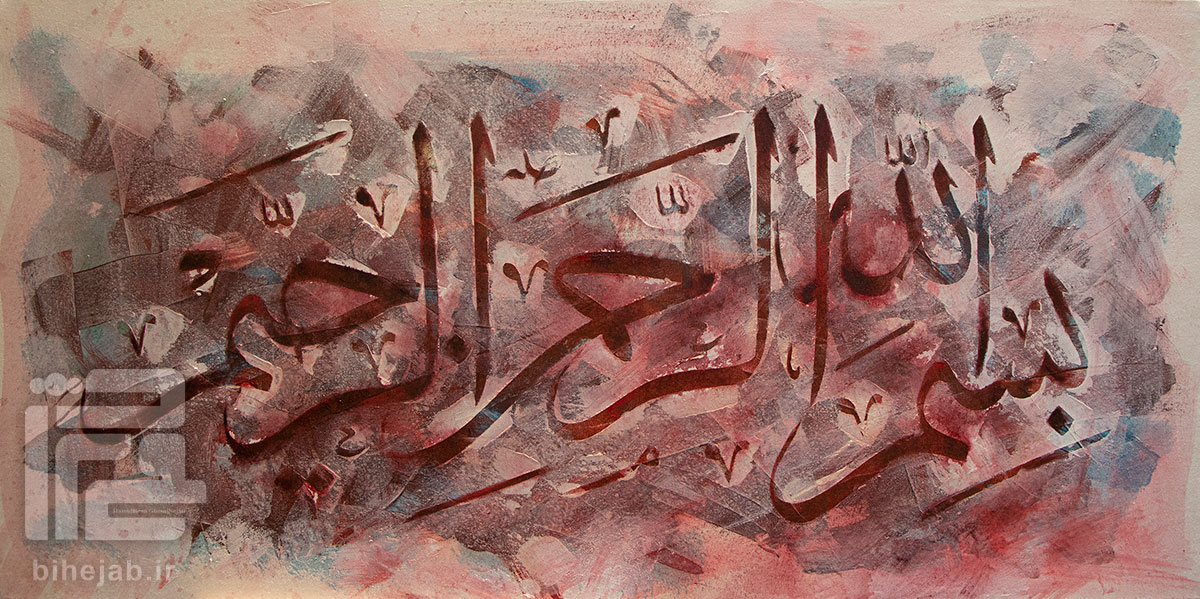 بسم الله الرحمن الرحیم
bihejab.ir